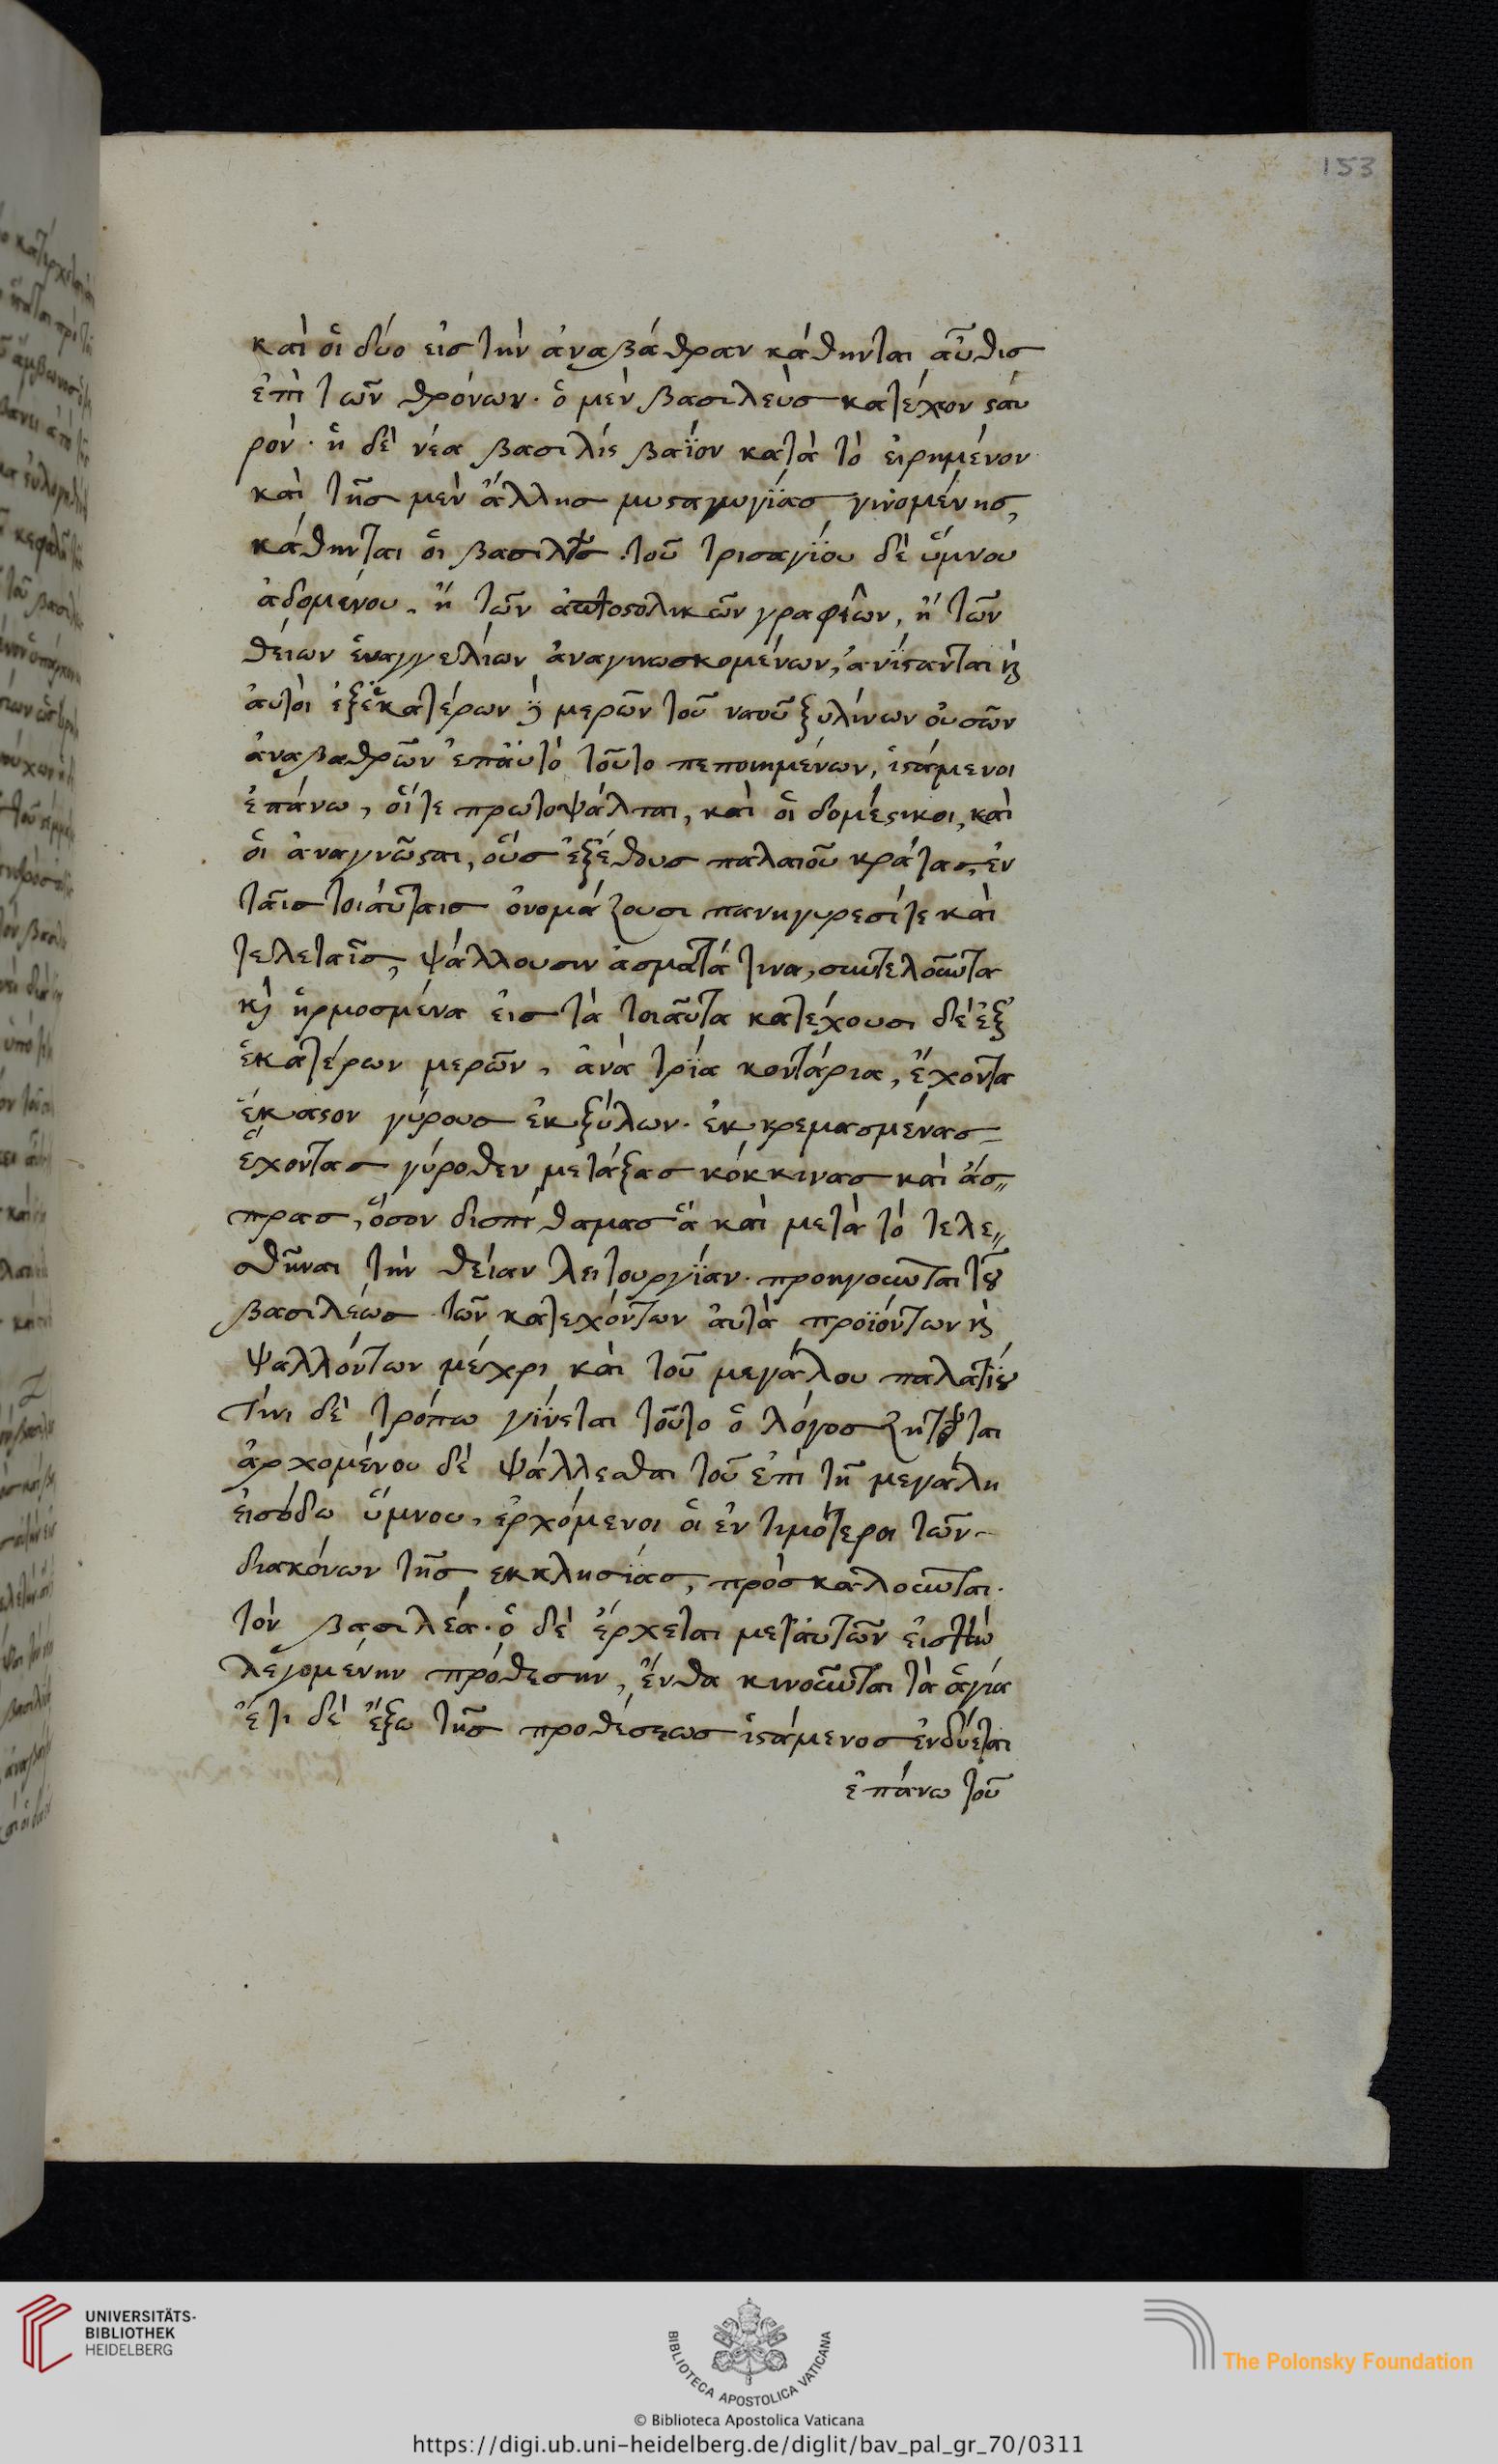 153
καὶ οἱ δύο εἰς τὴν ἀναβάθραν κάθηνται αὖθις
ἐπὶ τῶν θρόνων· ὁ μὲν βασιλεὺς κατέχον σταυ
ρόν· ἡ δὲ νέα βασιλὶς βαΐον κατὰ τὸ εἰρημένον
καὶ τῆς μὲν ἄλλης μυσταγωγίας γινομένης,
κάθηνται οἱ βασιλεῖς. τοῦ τρισαγίου δὲ ὕμνου
ἀδομένου, ἢ τῶν ἀποστολικῶν γραφεῶν, ἢ τῶν
θείων ἐυαγγελίων ἀναγινωσκομένων, ἀνίστανται κ
ἀυτοὶ ἐξἑκατέρων μερῶν τοῦ ναοῦ ξυλίνων οὐσῶν
ἀναβαθρῶν ἐπἀυτὸ τοῦτο πεποιημένων, ἱστάμενοι
ἐπάνω, οἵ τε πρωτοψάλται, καὶ οἱ δομέστικοι, καὶ
οἱ ἀναγνῶσται, οὓς ἐξέθους παλαιοῦ κράτας, ἐν
ταῖς τοιάυταις ὀνομάζουσι πανηγυρεσίτε καὶ
τελεταῖς, ψάλλουσιν ἀσματά τινα, συντελοῦντα
κ ἡρμοσμένα εἰς τὰ τοιαῦτα κατέχουσι δὲ ἐξ
ἑκατέρων μερῶν, ἀνὰ τρία κοντάρια, ἔχοντα
ἕκαστον γύρους ἐκ ξύλων· ἐκκρεμασμένας
ἔχοντας γύροθεν μετάξας κόκκινας καὶ ἄσ„
πρας, ὅσον δισπιθαμας ἃ καὶ μετὰ τὸ τελε„
σθῆναι τὴν θείαν λειτουργίαν· προηγοῦνται τοῦ
βασιλέως τῶν κατεχόντων ἀυτὰ προϊόντων κ
ψαλλόντων μέχρι καὶ τοῦ μεγάλου παλατίου
τίνι δὲ τρόπω γίνεται τοῦτο ὁ λόγος ζητεῖται
ἀρχομένου δὲ ψάλλεσθαι τοῦ ἐπὶ τῆ μεγάλη
εἰσόδω ὕμνου, ἐρχόμενοι οἱ ἐντιμότεροι τῶν
διακόνων τῆς εκκλησίας, πρόσκαλοῦνται.
τὸν βασιλέα· ὁ δὲ ἔρχεται μετἀυτῶν εἰς τὴν
λεγομένην πρόθεσην, ἔνθα κινοῦνται τὰ ἅγια
ἔτι δὲ ἔξω τῆς προθέσεως ἱστάμενος ἐνδύεται
ἐπάνω τοῦ
UNIVERSITÄTS-
BIBLIOTHEK
HEIDELBERG
BIBLIOTECA APOSTOLICA VATICANA
The Polonsky Foundation
© Biblioteca Apostolica Vaticana
https://digi.ub.uni-heidelberg.de/diglit/bav_pal_gr_70/0311